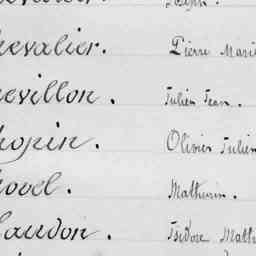 hevalier. Pierre Marie
hevillon. Julien Jean.
hopin. Olivier Julien
hovel. Mathurin.
laudon. Isidore Math